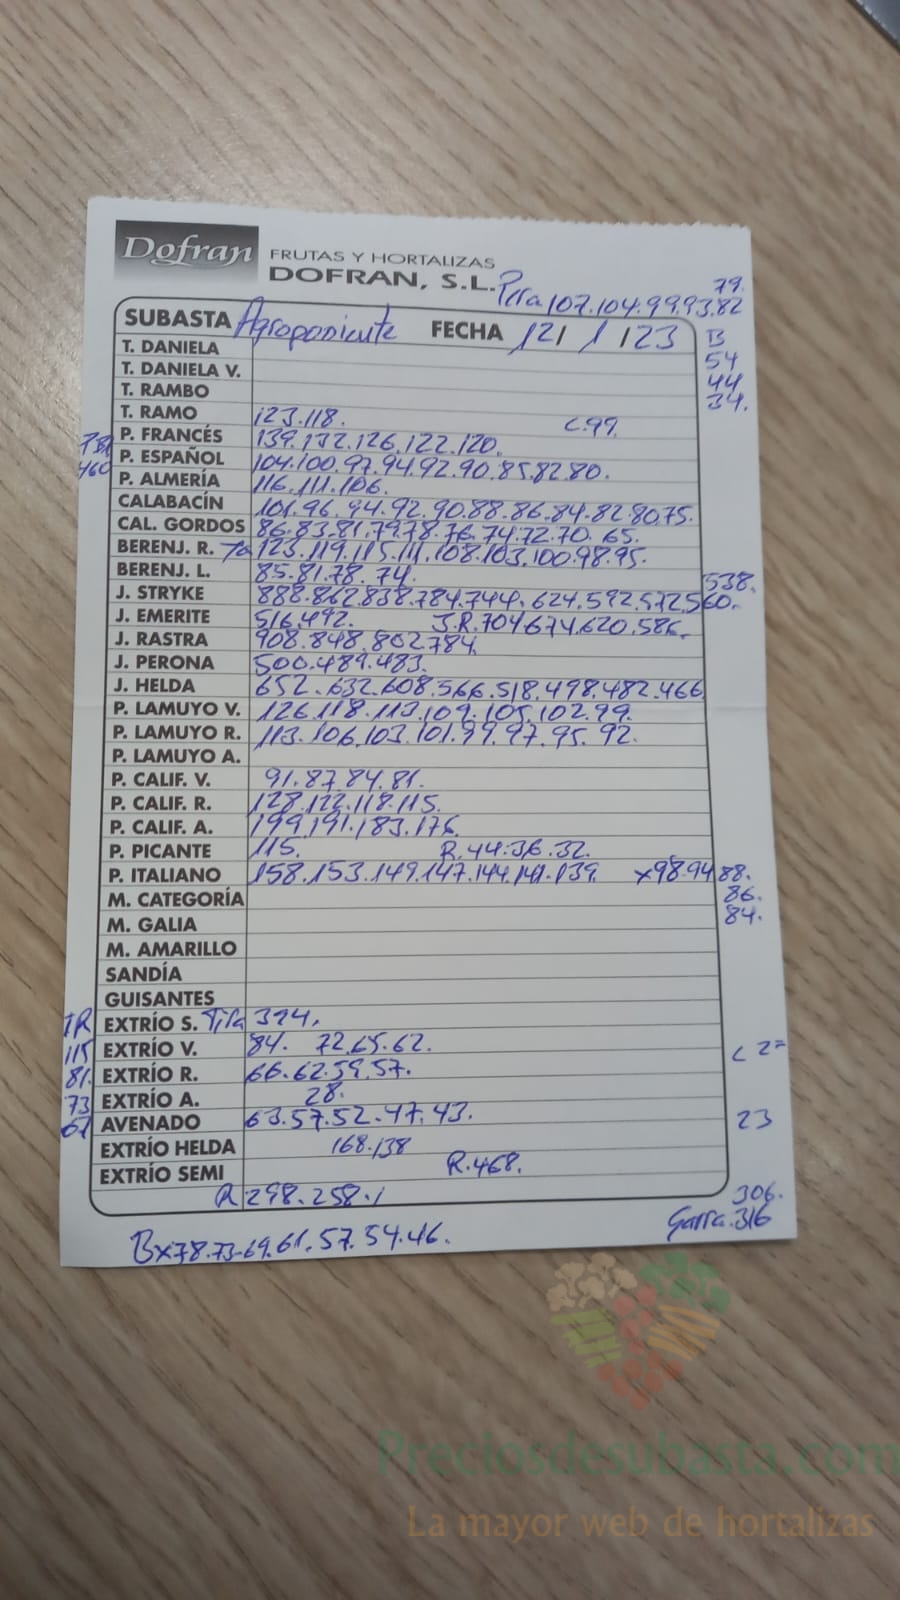 Dofran FRUTAS Y HORTALIZAS
DOFRAN, S.L.
79.
Pera 107.104.99.93.82
SUBASTA Agroponiente FECHA 121 / 123
B
54
44
34.
T. DANIELA
T. DANIELA V.
T. RAMBO
T. RAMO 123.118. C.99.
P. FRANCÉS 139.132.126.122.120.
460 P. ESPAÑOL 104.100.97.94.92.90.85.82.80.
P. ALMERÍA 116.111.106.
CALABACÍN 101.96.94.92.90.88.86.84.82.80.75.
CAL. GORDOS 86.83.81.79.78.76.74.72.70.65.
BERENJ. R. 123.119.115.111.108.103.100.98.95.
BERENJ. L. 85.81.78.74.
538.
J. STRYKE 888.862.838.784.744.624.592.572.560.
J. EMERITE 516.492. J.R.704.674.620.586.
J. RASTRA 908.848.802.784.
J. PERONA 500.489.483.
J. HELDA 652.632.608.566.518.498.482.466
P. LAMUYO V. 126.118.113.109.105.102.99.
P. LAMUYO R. 113.106.103.101.99.97.95.92.
P. LAMUYO A.
P. CALIF. V. 91.87.84.81.
P. CALIF. R. 128.122.118.115.
P. CALIF. A. 199.191.183.176.
P. PICANTE 115. R.44.36.32.
P. ITALIANO 158.153.149.147.144.141.139. x98.94.88.
86.
84.
M. CATEGORÍA
M. GALIA
M. AMARILLO
SANDÍA
GUISANTES
TR EXTRÍO S. 394.
115 EXTRÍO V. 84. 72.65.62.
81. EXTRÍO R. 66.62.59.57.
73 EXTRÍO A. 28.
67 AVENADO 63.57.52.47.43. 23
EXTRÍO HELDA 168.138
EXTRÍO SEMI R.468.
R 298.258.
306.
Garra.316
Bx78.73.69.61.57.54.46.
Preciosdesubasta.com
La mayor web de hortalizas